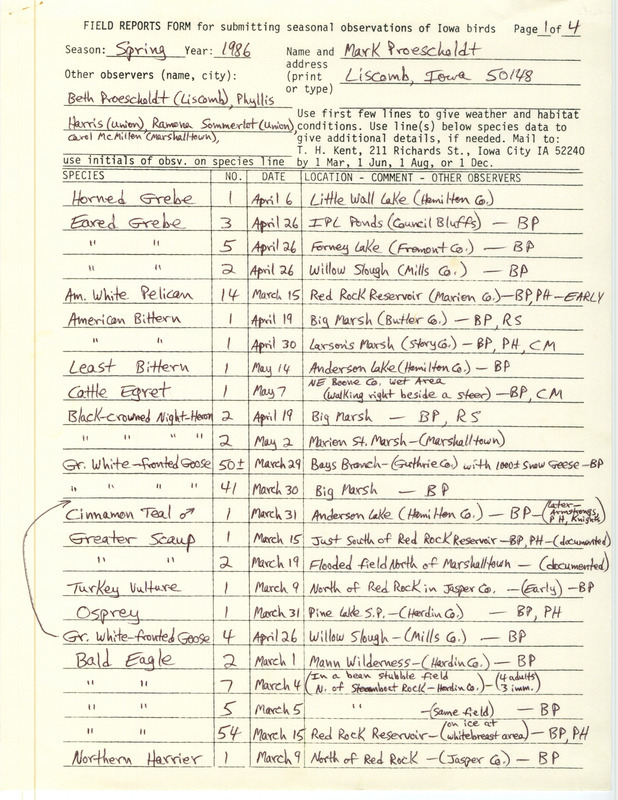 FIELD REPORTS FORM for submitting seasonal observations of Iowa birds Page 1 of 4
Season: Spring Year: 1986 Name and Mark Proescholdt
address
Other observers (name, city): (print Liscomb, Iowa 50148
or type)
Beth Proescholdt (Liscomb), Phyllis
Harris (Union), Ramona Sommerlot (Union),
Carol McMillen (Marshalltown),
use initials of obsv. on species line
Use first few lines to give weather and habitat
conditions. Use line(s) below species data to
give additional details, if needed. Mail to:
T. H. Kent, 211 Richards St., Iowa City IA 52240
by 1 Mar, 1 Jun, 1 Aug, or 1 Dec.
SPECIES NO. DATE LOCATION - COMMENT - OTHER OBSERVERS
Horned Grebe 1 April 6 Little Wall Lake (Hamilton Co.)
Eared Grebe 3 April 26 IPL Ponds (Council Bluffs) — BP
" " 5 April 26 Forney Lake (Fremont Co.) — BP
" " 2 April 26 Willow Slough (Mills Co.) — BP
Am. White Pelican 14 March 15 Red Rock Reservoir (Marion Co.)—BP, PH—EARLY
American Bittern 1 April 19 Big Marsh (Butler Co.) — BP, RS
" " 1 April 30 Larson's Marsh (Story Co.) — BP, PH, CM
Least Bittern 1 May 14 Anderson Lake (Hamilton Co.) — BP
Cattle Egret 1 May 7 NE Boone Co. Wet Area
(walking right beside a steer) —BP, CM
Black-crowned Night-Heron 2 April 19 Big Marsh — BP, RS
" " " " 2 May 2 Marion St. Marsh—(Marshalltown)
Gr. White-fronted Goose 50± March 29 Bays Branch—(Guthrie Co.) with 1000± Snow Geese—BP
" " " " 41 March 30 Big Marsh — BP
Cinnamon Teal ♂ 1 March 31 Anderson Lake (Hamilton Co.) — BP—(later- Armstrongs, PH, Knights)
Greater Scaup 1 March 15 Just South of Red Rock Reservoir—BP, PH—(documented)
" " 2 March 19 Flooded field North of Marshalltown — (documented)
Turkey Vulture 1 March 9 North of Red Rock in Jasper Co. —(Early) —BP
Osprey 1 March 31 Pine Lake S.P. —(Hardin Co.) — BP, PH
Gr. White-fronted Goose 4 April 26 Willow Slough—(Mills Co.) — BP
Bald Eagle 2 March 1 Mann Wilderness—(Hardin Co.) — BP
" " 7 March 4 (In a bean stubble field
N. of Steamboat Rock—Hardin Co.)—(4 adults, 3 imm.)
" " 5 March 5 " —(same field) — BP
" " 54 March 15 Red Rock Reservoir—(on ice at whitebreast area)—BP, PH
Northern Harrier 1 March 9 North of Red Rock —(Jasper Co.) — BP